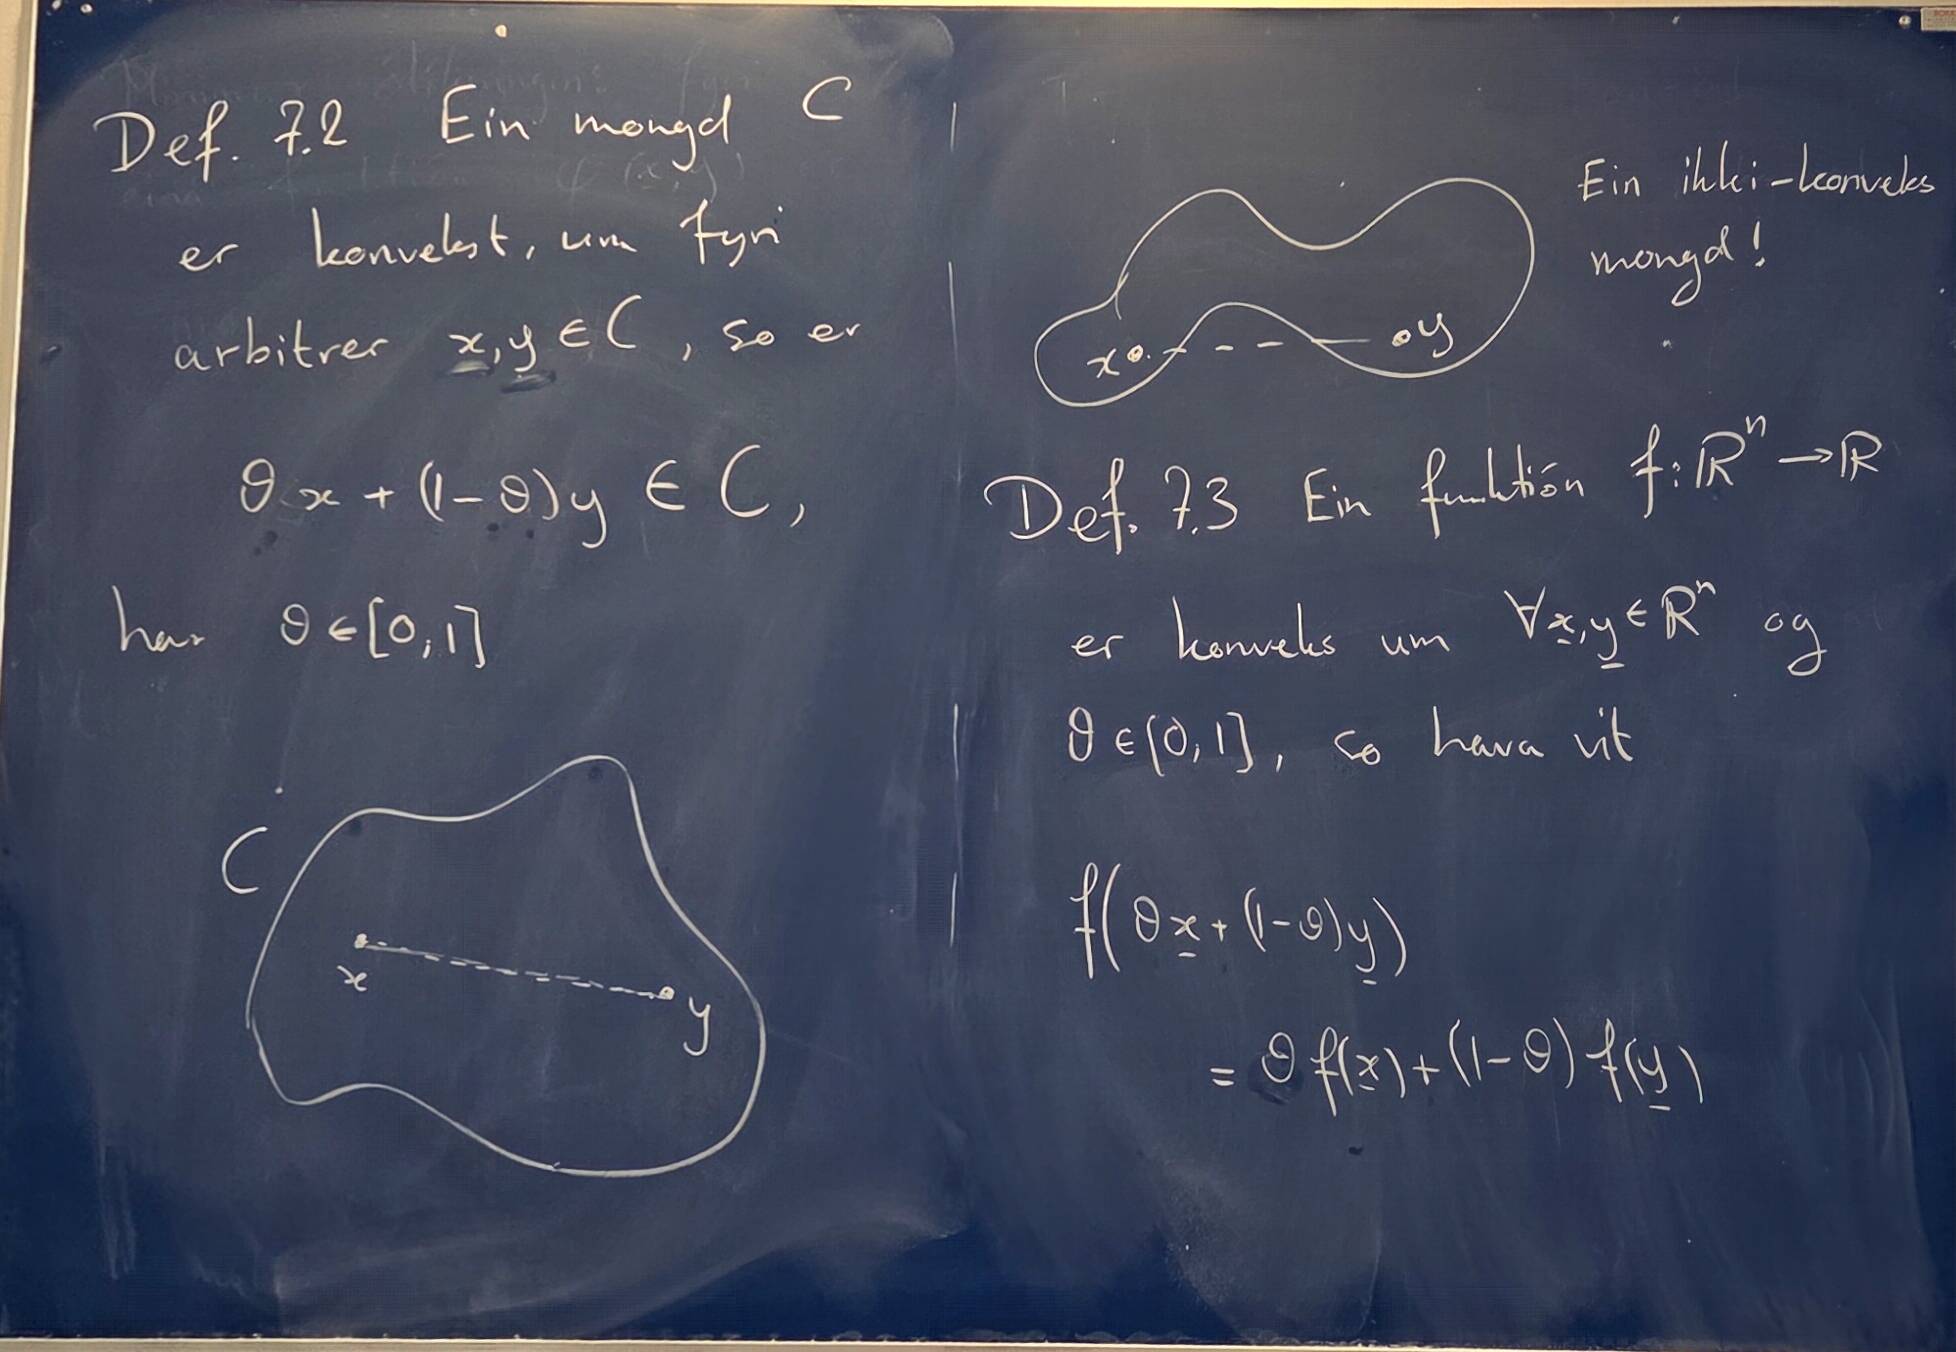 Def. 7.2 Ein mongd C
er konvekst, um fyri
arbitrer x, y ∈ C, so er
θx + (1-θ)y ∈ C,
har θ ∈ [0,1]
C
x
y
Ein ikki-konveks
mongd!
x
y
Def. 7.3 Ein funktión f: ℝⁿ → ℝ
er konveks um ∀x, y ∈ ℝⁿ og
θ ∈ [0,1], so hava vit
f(θx + (1-θ)y)
= θ f(x) + (1-θ) f(y)